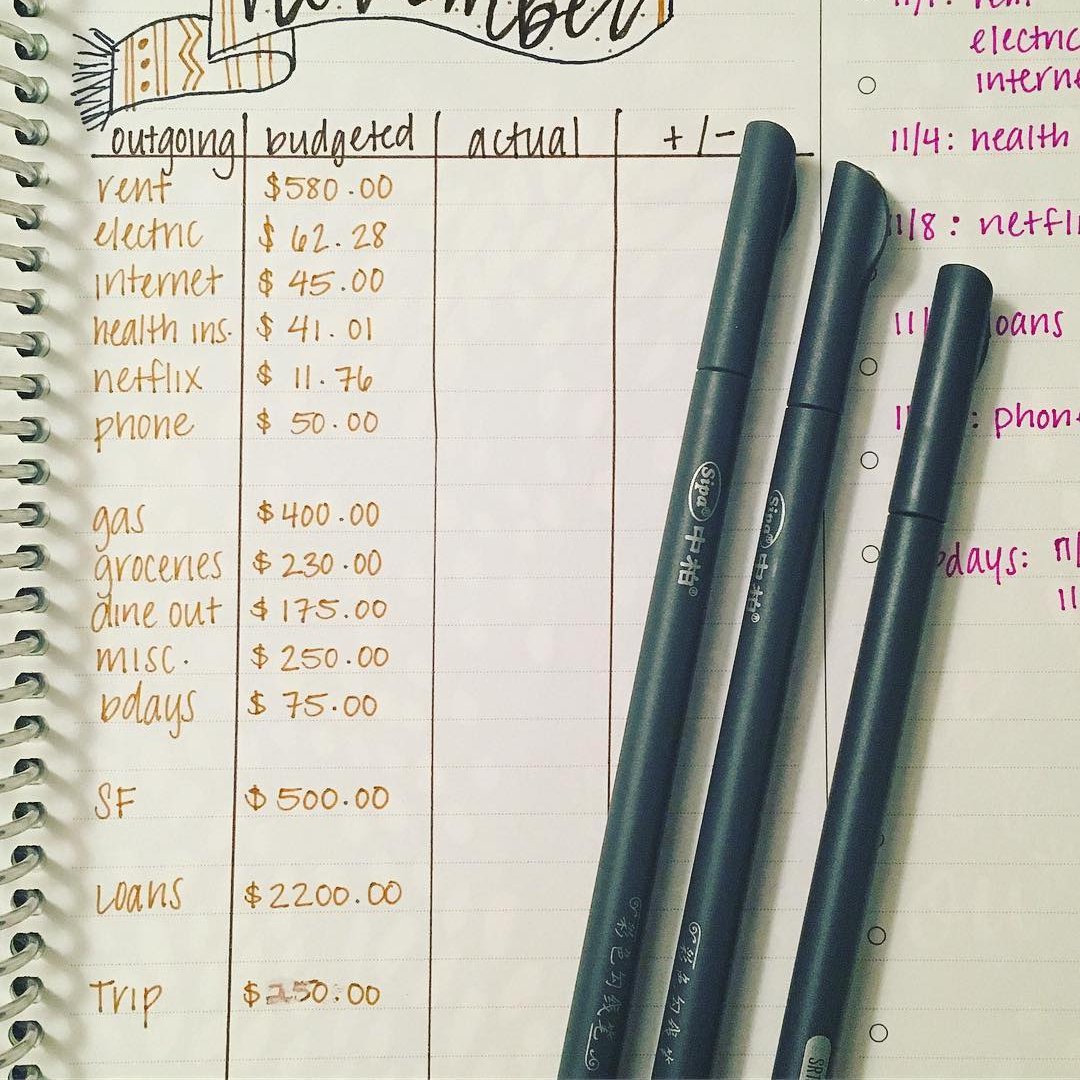 november
outgoing budgeted actual +/-
rent $580.00
electric $62.28
internet $45.00
health ins. $41.01
netflix $11.76
phone $50.00
gas $400.00
groceries $230.00
dine out $175.00
misc. $250.00
bdays $75.00
SF $500.00
Loans $2200.00
Trip $250.00
11/1: rent
electric
interne
11/4: health
11/8: netfli
11 loans
11 : phon
bdays: 11/
11
Sipa® 中柏®
Sipa® 中柏®
彩色勾线笔
彩色勾线笔
SR